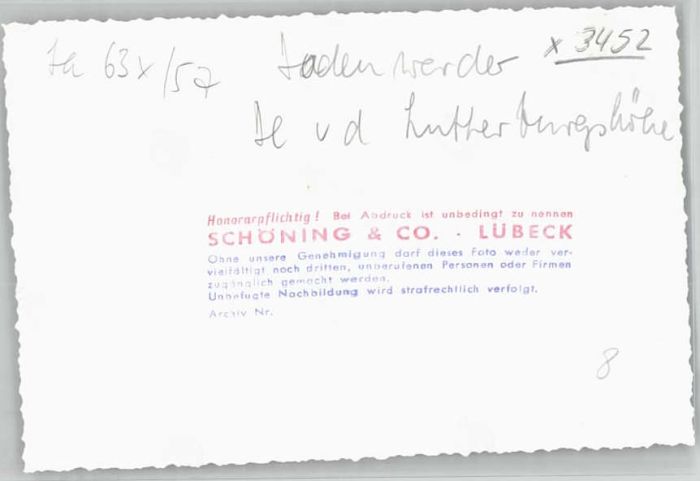 Ja 63x/57 Bodenwerder x 3452
Bl v d Lutterburgshöhe
Honorarpflichtig! Bei Abdruck ist unbedingt zu nennen
SCHÖNING & CO. - LÜBECK
Ohne unsere Genehmigung darf dieses Foto weder ver-
vielfältigt noch dritten, unberufenen Personen oder Firmen
zugänglich gemacht werden.
Unbefugte Nachbildung wird strafrechtlich verfolgt.
Archiv Nr.
8